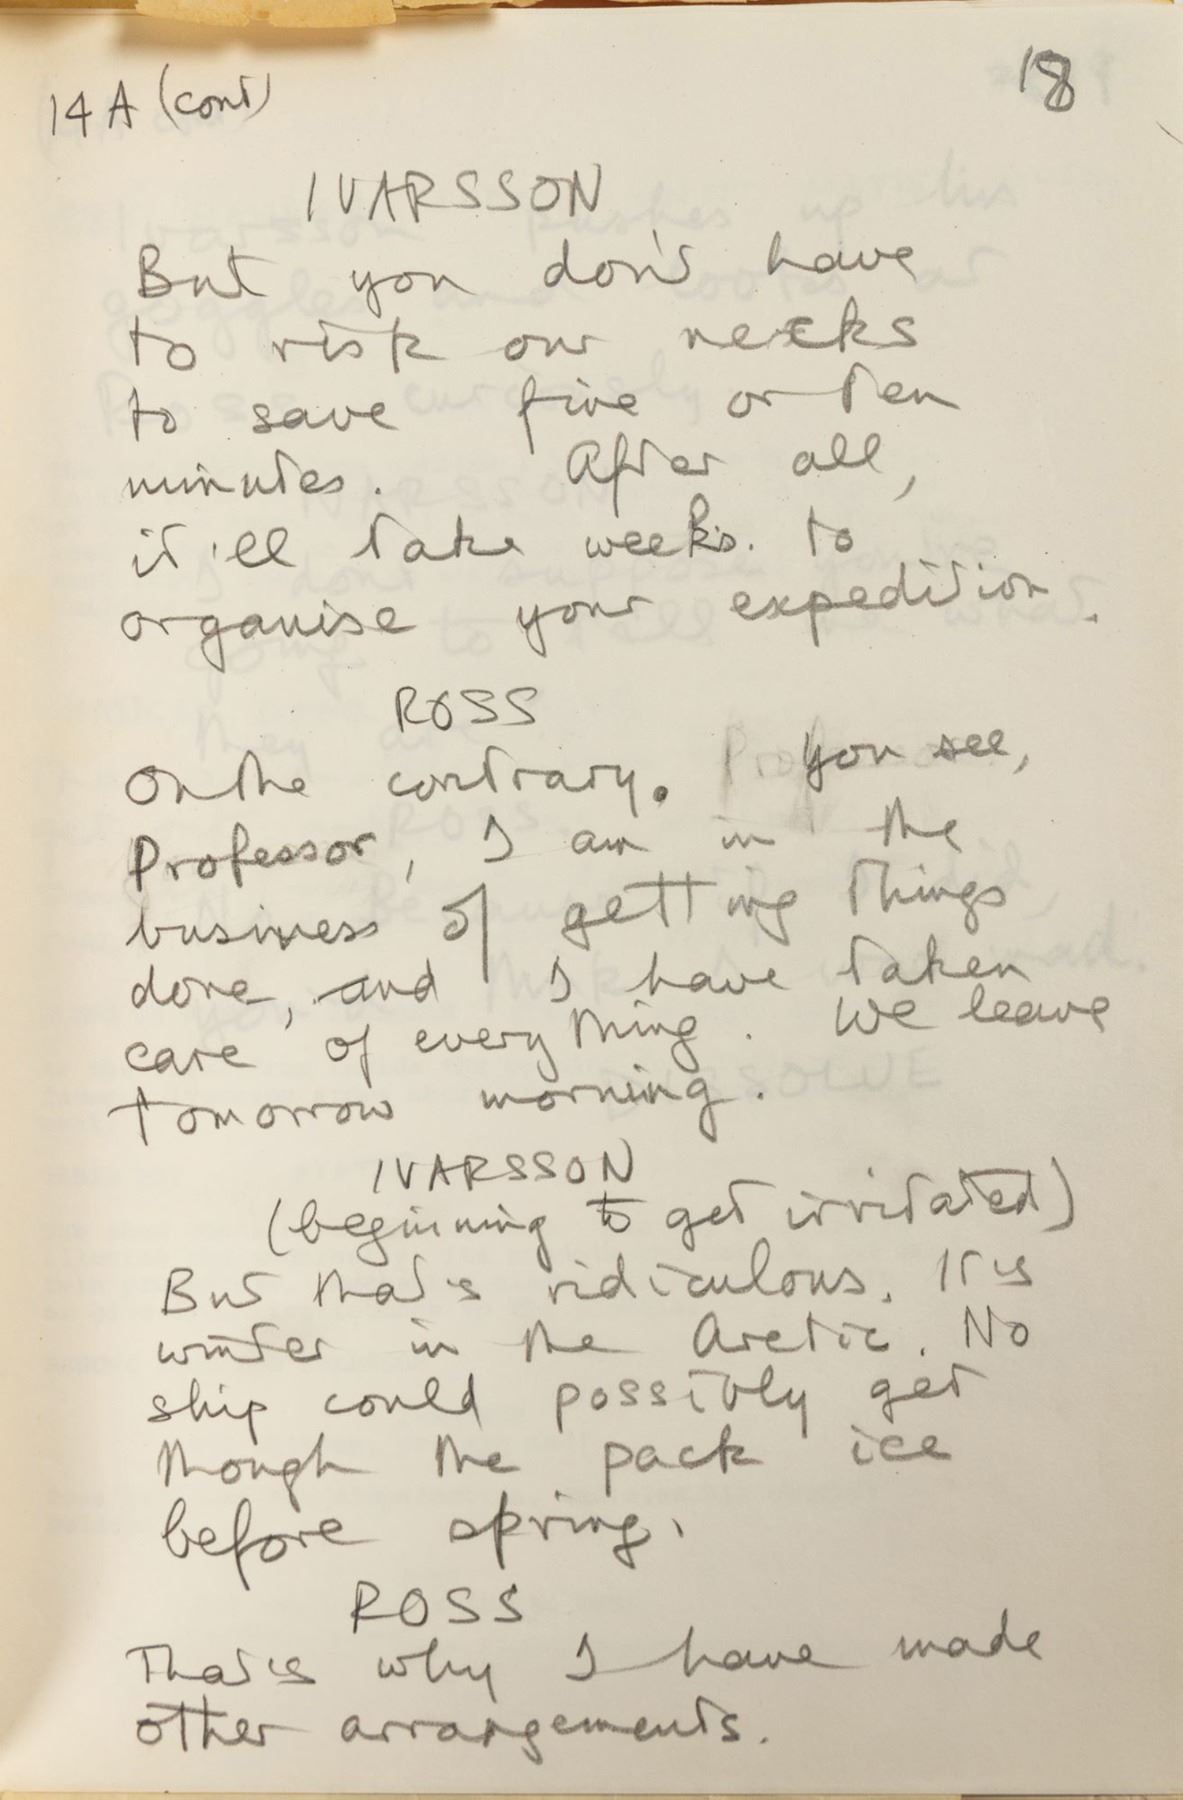 14A (cont)
18
IVARSSON
But you don't have
to risk our necks
to save five or ten
minutes. After all,
it'll take weeks. to
organise your expedition.
ROSS
On the contrary. You see,
Professor, I am in the
business of getting things
done, and I have taken
care of everything. We leave
tomorrow morning.
IVARSSON
(beginning to get irritated)
But that's ridiculous. It is
winter in the Arctic. No
ship could possibly get
though the pack ice
before spring.
ROSS
That is why I have made
other arrangements.